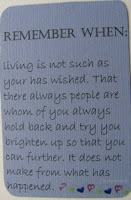 REMEMBER WHEN:
living is not such as
your has wished. That
there always people are
whom of you always
hold back and try you
brighten up so that you
can further. It does not
make from what has
happened.